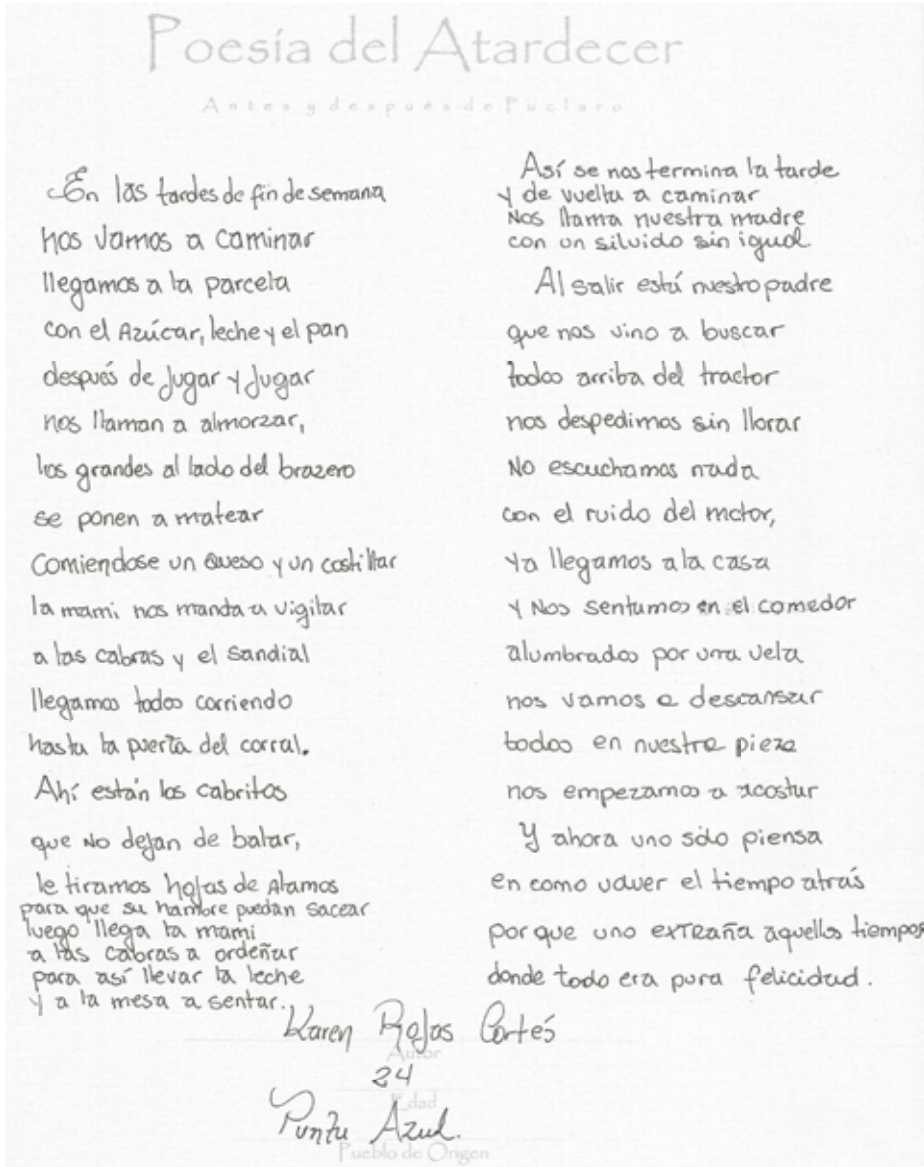 Poesía del Atardecer
Antes y después de Puclaro
En las tardes de fin de semana
nos vamos a caminar
llegamos a la parcela
con el Azúcar, leche y el pan
después de Jugar y Jugar
nos llaman a almorzar,
los grandes al lado del brazero
se ponen a matear
Comiendose un Queso y un costillar
la mami nos manda a vigilar
a las cabras y el sandial
llegamos todos corriendo
hasta la puerta del corral.
Ahí están los cabritos
que No dejan de balar,
le tiramos hojas de Alamos
para que su hambre puedan sacear
luego llega la mami
a las cabras a ordeñar
para así llevar la leche
y a la mesa a sentar.
Así se nos termina la tarde
y de vuelta a caminar
Nos llama nuestra madre
con un silvido sin igual
Al salir está nuestro padre
que nos vino a buscar
todos arriba del tractor
nos despedimos sin llorar
No escuchamos nada
con el ruido del motor,
ya llegamos a la casa
y Nos sentamos en el comedor
alumbrados por una vela
nos vamos a descansar
todos en nuestra pieza
nos empezamos a acostar
Y ahora uno sólo piensa
en como volver el tiempo atrás
por que uno extraña aquellos tiempos
donde todo era pura felicidad.
Karen Rojas Cortés
Autor
24
Edad
Punta Azul.
Pueblo de Origen